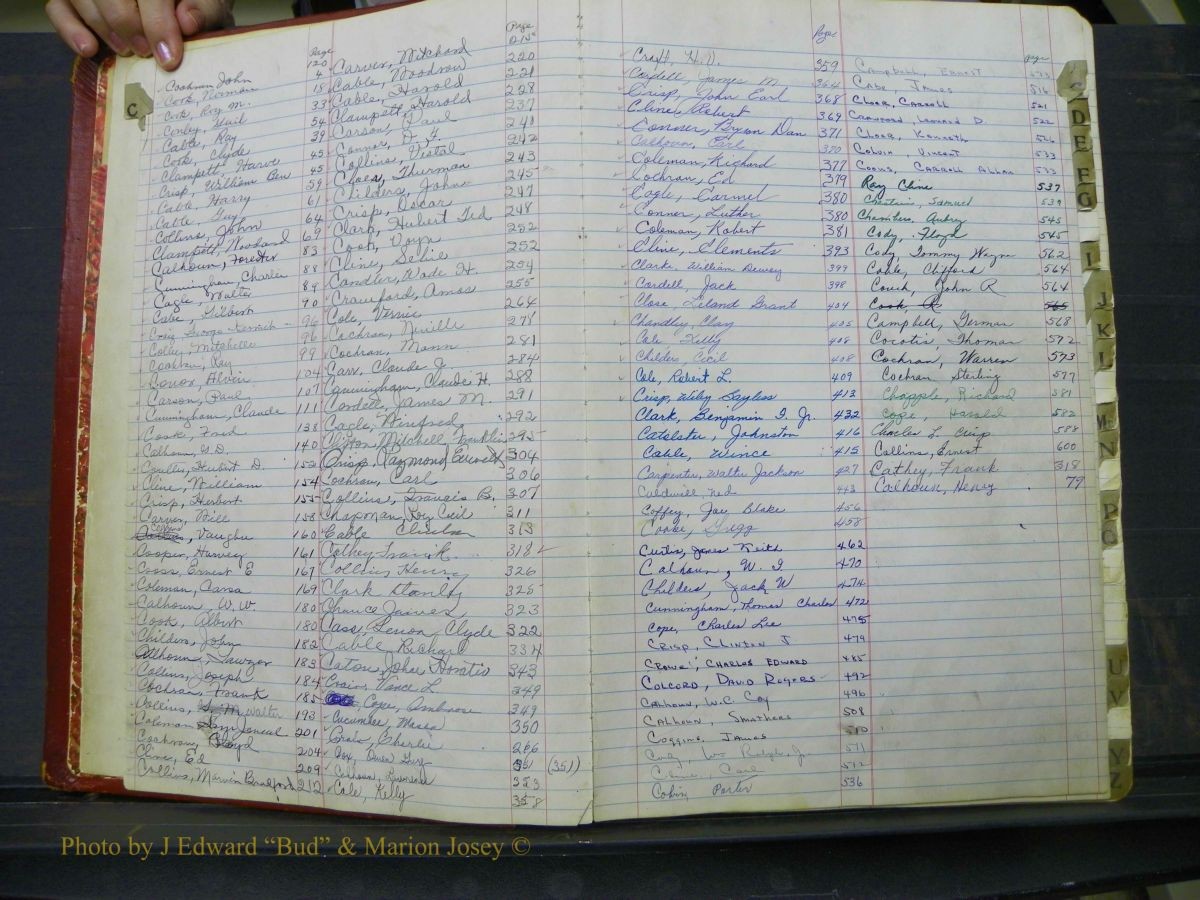 Page
Cochran John 120
Cook, Norman 4
Cook, Roy M. 15
Conley, Wail 33
Cable, Ray 54
Cook, Clyde 39
Clampett, Harve 45
Crisp, William Ben 45
Cable, Harry 59
Cable, Guy 61
Collins, John 64
Clampett, Woodard 69
Calhoun, Forester 83
Cunningham, Charlie 88
Cagle, Walter 89
Cabe, Gilbert 90
Craig George 96
Colley, Mitchelle 96
Cochran, Ray 99
Connor Alvin 104
Carson, Paul 107
Cunningham, Claude 111
Cook, Fred 138
Calhoun, G.D. 140
Hubert D. 152
Cline, William 154
Crisp, Herbert 155
Carver, Will 158
Collins, Vaughn 160
Cooper, Harvey 161
Coons, Ernest E 167
Coleman, Carra 169
Calhoun, W.W. 180
Cook, Albert 180
Childers, John 182
Calhoun, Sawyer 183
Collins, Joseph 184
Cochran, Frank 185
Collins, Walter 193
Coleman 201
Cochran, Floyd 204
Cline, Ed 209
Collins, Marvin Bradford 212
Page
Carver, Mitchard 215
Cable, Woodrow 220
Cable, Harold 221
Clampett, Harold 228
Carson, Paul 237
Connor, D. F. 241
Collins, Vestal 242
Cloer, Thurman 243
Childers, John 245
Crisp, Oscar 247
Clark, Hubert Ted 248
Cook, Doyn 252
Cline, Selvie 252
Candler, Wade H. 254
Crawford, Amos 255
Cole, Vernie 264
Cochran, Neville 278
Cochran, Mann 281
Carr, Claude J. 284
Cunningham, Claude H. 288
Cordell James M. 291
Cagle, Winfred 292
Clifton, Mitchell Franklin 295
Crisp, Raymond Everett 304
Cochran, Carl 306
Collins, Francis B. 307
Chapman, Loy Cecil 311
Cable Clinton 313
Cathey Frank 318
Collins, Henry 326
Clark Stanly 325
Chance James 323
Cass, Lenon Clyde 322
Cable Richard 334
Caton, John Horatio 343
Crain, Vance L. 349
Cope, Ambrose 349
Cucumber, Mose 350
Crain, Charlie 266
Cox, Owen Guy 351 (351)
Calhoun, Lawrence 353
Cole, Kelly 358
Page
Craft, H.V. 359
Cordell, James M. 364
Crisp, John Earl 368
Cline, Robert 369
Conner, Byron Dan 371
Calhoun, Earl 370
Coleman, Richard 377
Cochran, Ed 379
Cagle, Carmel 380
Conner, Luther 380
Coleman, Robert 381
Cline, Clements 393
Clarke, William Dewey 399
Cordell, Jack 398
Close Leland Grant 404
Chandley, Clay 405
Cole Kelly 408
Childers Cecil 408
Cole, Robert L. 409
Crisp, Wiley Sayless 413
Clark, Benjamin I. Jr. 432
Catolster, Johnston 416
Cable, Wince 415
Carpenter, Walter Jackson 427
Caldwell, Ned 443
Coffey, Jay Blake 456
Cooke, Gregg 458
Curtis, James Keith 462
Calhoun, W. I 470
Childers, Jack W 474
Cunningham, Thomas Charles 472
Cope, Charles Lee 475
Crisp, Clinton J 479
Crowe, Charles Edward 485
Colcord, David Rogers 492
Calhoun, W.C. Coy 496
Calhoun, Smathers 508
Coggins, James 510
Wm Ralph, Jr. 571
Carl 572
Colvin, Porter 536
page
Campbell, Ernest 493
Cabe, James 516
Cloer, Carroll 521
Crawford, Leonard D. 522
Cloer, Kenneth 526
Colvin, Vincent 533
Coons, Carroll Allman 533
Ray Cline 537
Samuel 539
Chambers Aubry 545
Cody, Floyd 545
Cody, Tommy Wayne 562
Cable, Clifford 564
Couch, John R 564
Cook, R 565
Campbell, German 568
Cocotis, Thomas 572
Cochran, Warren 573
Cochran Sterling 577
Chapple, Richard 581
Cope, Harold 582
Charles L. Crisp 588
Collins, Ernest 600
Cathey, Frank 318
Calhoun, Henry 79
C
C
D
E
F
G
I
J
K
L
M
N
P
Q
U
V
Y
Z
Photo by J Edward "Bud" & Marion Josey ©